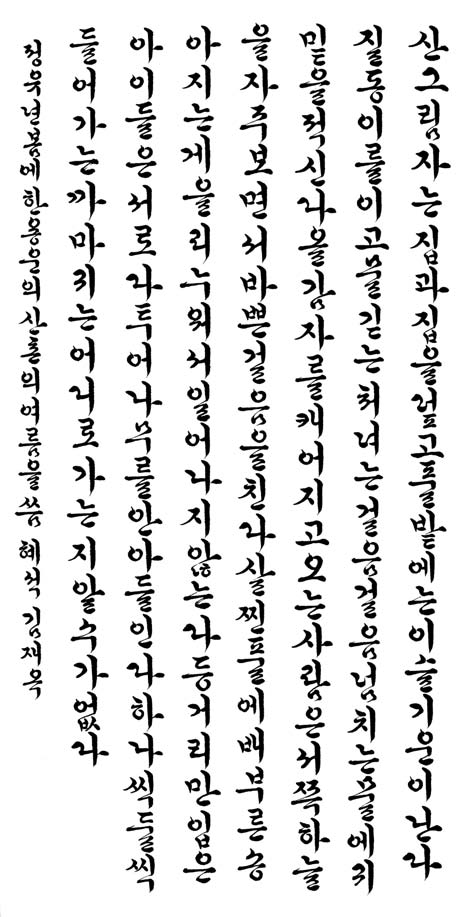 산그림자는집과집을덮고풀밭에는이슬기운이난다
질동이를이고물긷는처녀는걸음걸음넘치는물에귀
밑을적신다올감자를캐어지고오는사람은서쪽하늘
을자주보면서바쁜걸음을친다살찐풀에배부른송
아지는게을리누워서일어나지않는다등거리만입은
아이들은서로다투어나무를안아들인다하나씩둘씩
들어가는까마귀는어디로가는지알수가없다
정유년봄에한용운의산촌의여름을씀 혜석 김재옥